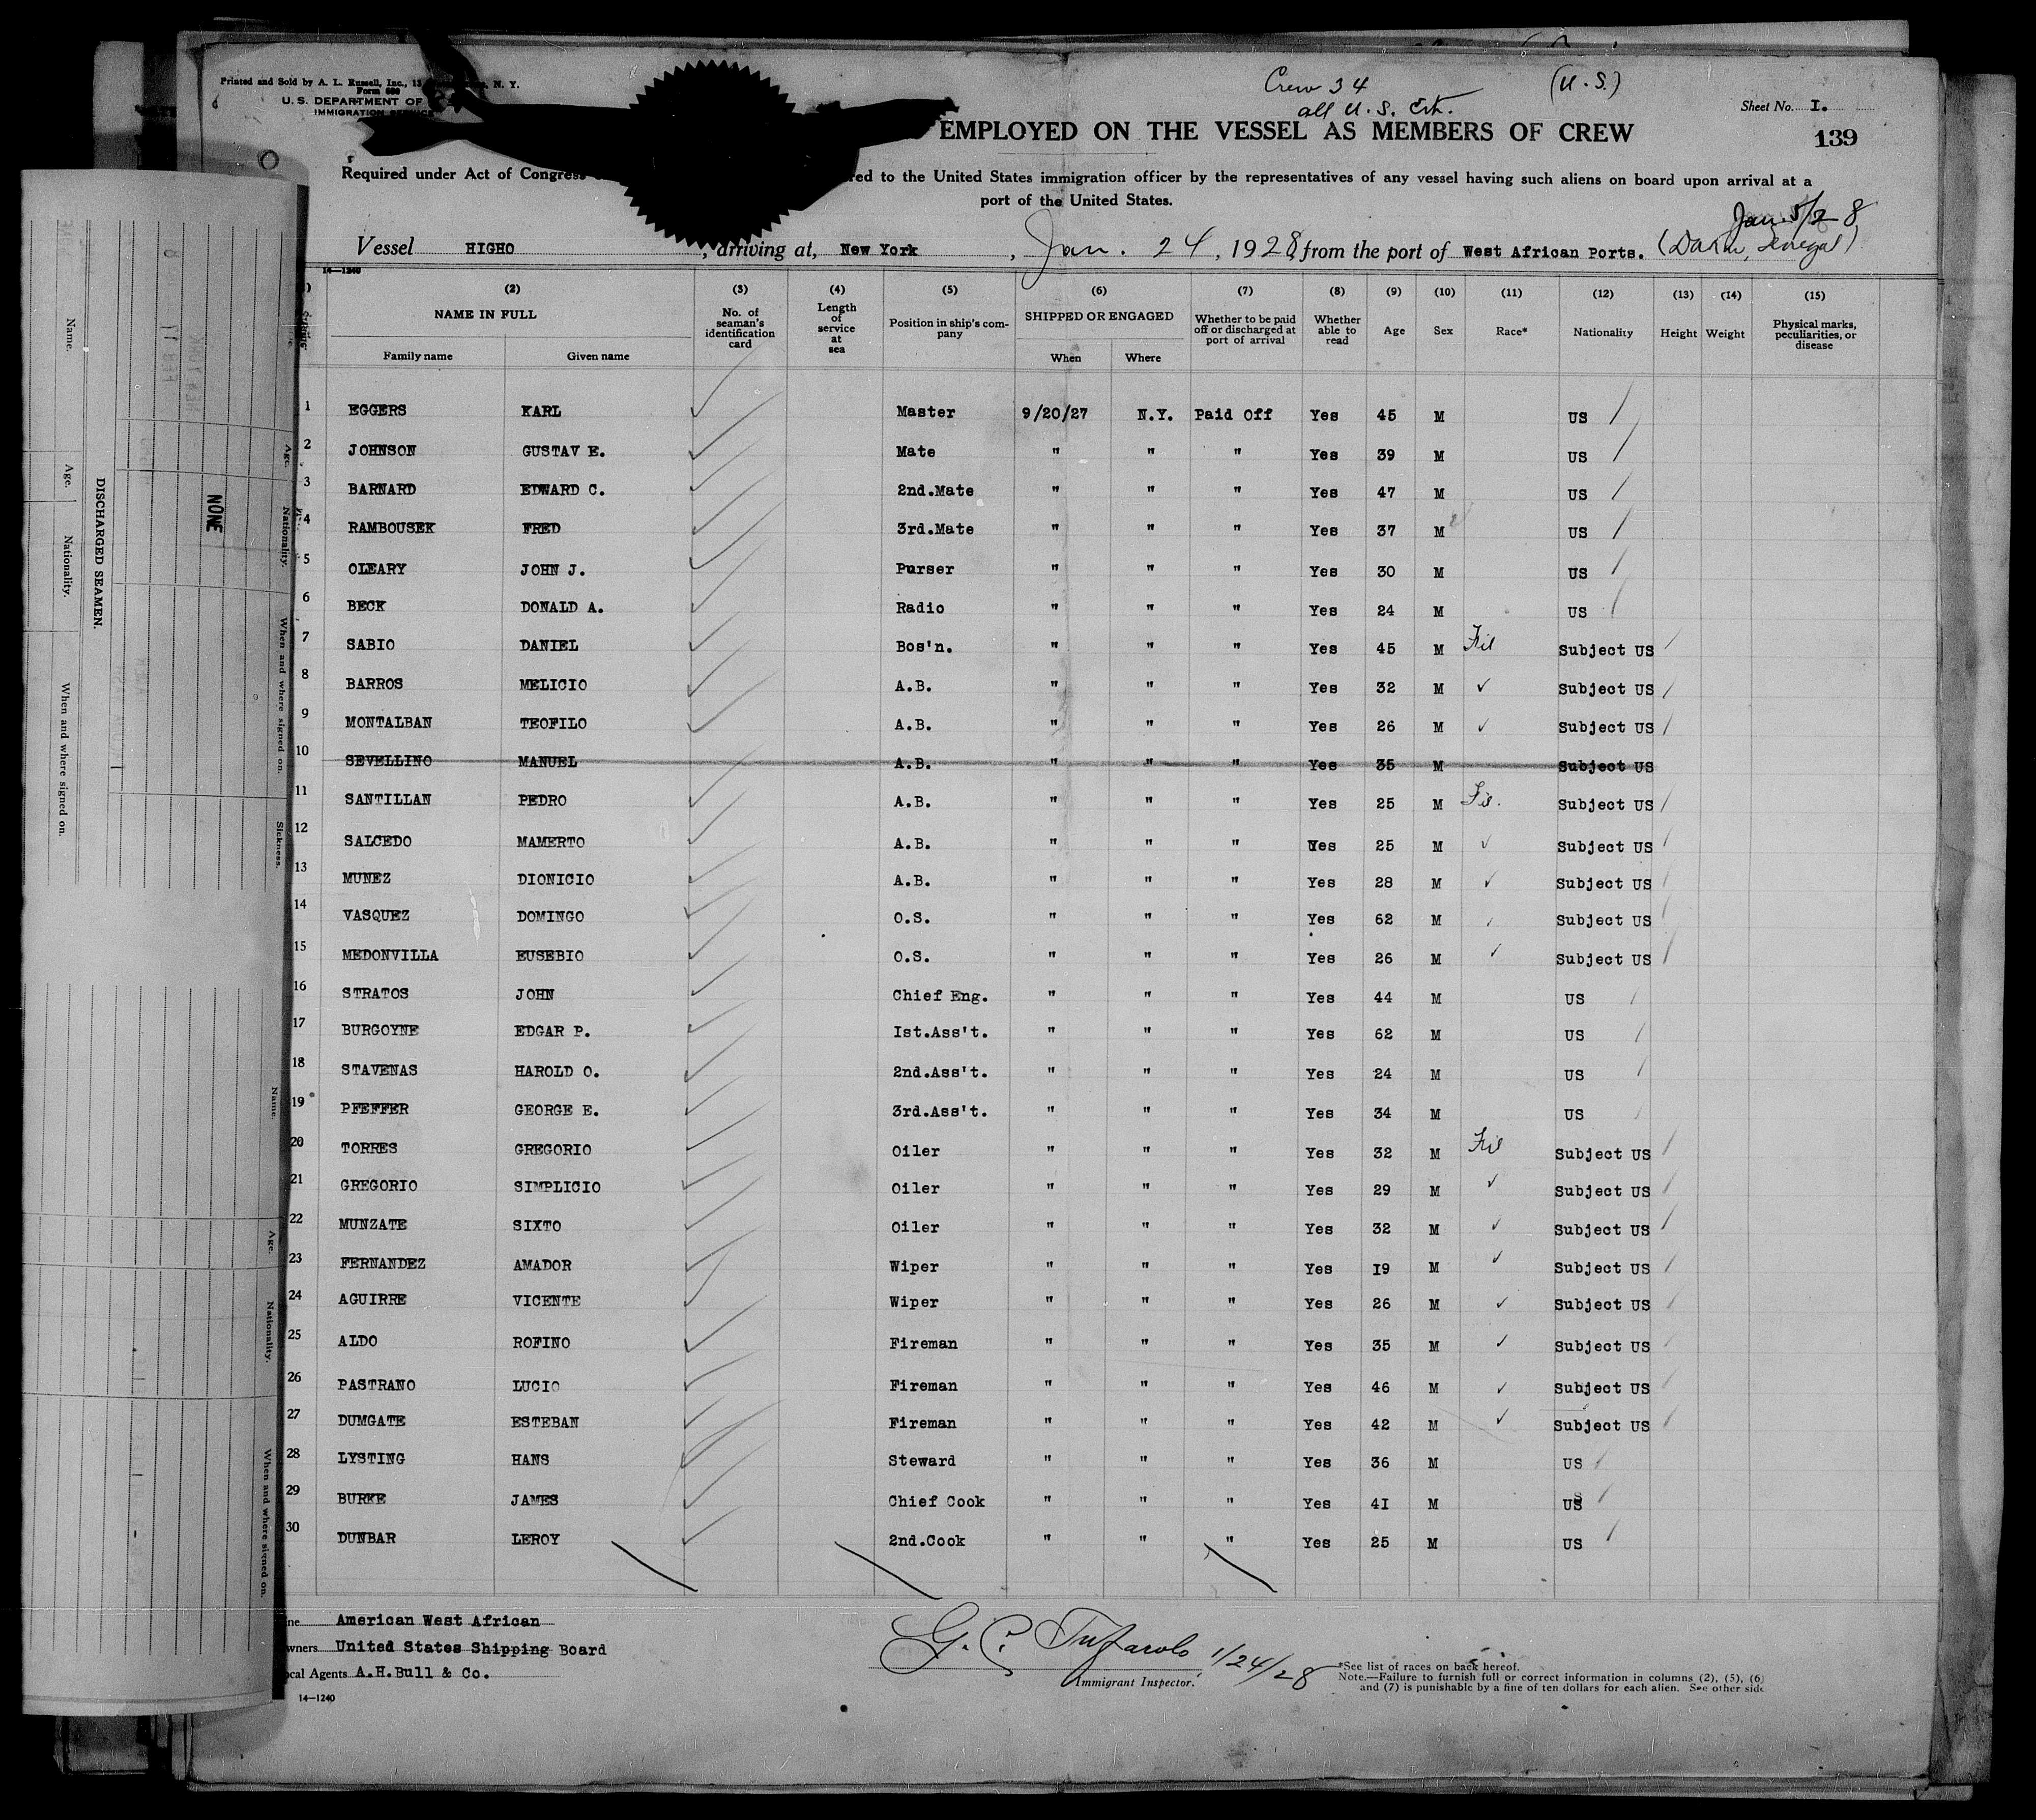 Printed and Sold by A. L. Russell, Inc., N. Y.
Form 680
U. S. DEPARTMENT OF
IMMIGRATION SERVICE
Crew 34 (U.S.)
all U.S. Cit.
Sheet No. I.
EMPLOYED ON THE VESSEL AS MEMBERS OF CREW
139
Required under Act of Congress red to the United States immigration officer by the representatives of any vessel having such aliens on board upon arrival at a
port of the United States.
Jan. 5/28
Vessel HIGHO, arriving at, New York, Jan. 24, 1928, from the port of West African Ports. (Dakar, Senegal)
14—1240
(2) (3) (4) (5) (6) (7) (8) (9) (10) (11) (12) (13) (14) (15)
NAME IN FULL No. of seaman's identification card Length of service at sea Position in ship's company SHIPPED OR ENGAGED Whether to be paid off or discharged at port of arrival Whether able to read Age Sex Race* Nationality Height Weight Physical marks, peculiarities, or disease
Family name Given name When Where
1 EGGERS KARL ✓ Master 9/20/27 N.Y. Paid Off Yes 45 M US /
2 JOHNSON GUSTAV E. ✓ Mate " " " Yes 39 M US /
3 BARNARD EDWARD C. ✓ 2nd.Mate " " " Yes 47 M US /
4 RAMBOUSEK FRED ✓ 3rd.Mate " " " Yes 37 M US /
5 OLEARY JOHN J. ✓ Purser " " " Yes 30 M US /
6 BECK DONALD A. ✓ Radio " " " Yes 24 M US /
7 SABIO DANIEL ✓ Bos'n. " " " Yes 45 M Fil Subject US /
8 BARROS MELICIO ✓ A.B. " " " Yes 32 M ✓ Subject US /
9 MONTALBAN TEOFILO ✓ A.B. " " " Yes 26 M ✓ Subject US /
10 SEVELLINO MANUEL A.B. " " " Yes 35 M Subject US
11 SANTILLAN PEDRO ✓ A.B. " " " Yes 25 M Fil. Subject US /
12 SALCEDO MAMERTO ✓ A.B. " " " Yes 25 M ✓ Subject US /
13 MUNEZ DIONICIO ✓ A.B. " " " Yes 28 M ✓ Subject US /
14 VASQUEZ DOMINGO ✓ O.S. " " " Yes 62 M ✓ Subject US /
15 MEDONVILLA EUSEBIO ✓ O.S. " " " Yes 26 M ✓ Subject US /
16 STRATOS JOHN ✓ Chief Eng. " " " Yes 44 M US /
17 BURGOYNE EDGAR P. ✓ Ist.Ass't. " " " Yes 62 M US /
18 STAVENAS HAROLD O. ✓ 2nd.Ass't. " " " Yes 24 M US /
19 PFEFFER GEORGE E. ✓ 3rd.Ass't. " " " Yes 34 M US /
20 TORRES GREGORIO ✓ Oiler " " " Yes 32 M Fil Subject US /
21 GREGORIO SIMPLICIO ✓ Oiler " " " Yes 29 M ✓ Subject US /
22 MUNZATE SIXTO ✓ Oiler " " " Yes 32 M ✓ Subject US /
23 FERNANDEZ AMADOR ✓ Wiper " " " Yes I9 M ✓ Subject US /
24 AGUIRRE VICENTE ✓ Wiper " " " Yes 26 M ✓ Subject US /
25 ALDO ROFINO ✓ Fireman " " " Yes 35 M ✓ Subject US /
26 PASTRANO LUCIO ✓ Fireman " " " Yes 46 M ✓ Subject US /
27 DUMGATE ESTEBAN ✓ Fireman " " " Yes 42 M ✓ Subject US /
28 LYSTING HANS ✓ Steward " " " Yes 36 M US /
29 BURKE JAMES ✓ Chief Cook " " " Yes 4I M US /
30 DUNBAR LEROY ✓ 2nd.Cook " " " Yes 25 M US /
ine American West African
wners United States Shipping Board
ocal Agents A.H.Bull & Co.
1/24/28
Immigrant Inspector.
*See list of races on back hereof.
Note.—Failure to furnish full or correct information in columns (2), (5), (6)
and (7) is punishable by a fine of ten dollars for each alien. See other side
14—1240
DISCHARGED SEAMEN.
Name. Age. Nationality. When and where signed on.
NONE
Age. Nationality. When and where signed on. Sickness.
Name. Age. Nationality. When and where signed on.